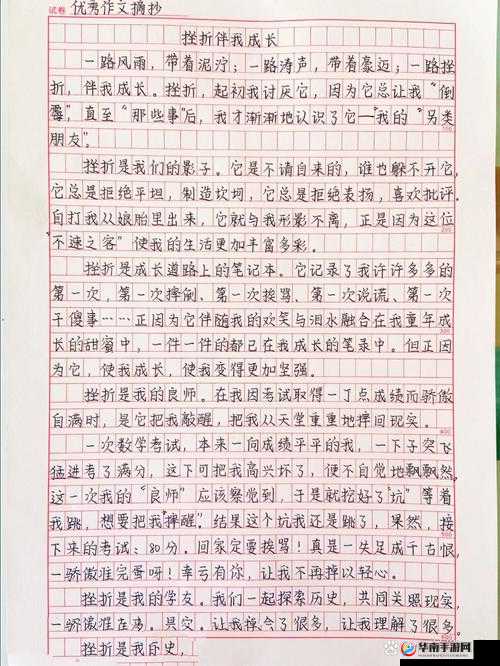 试卷 优秀作文摘抄
挫折伴我成长
一路风雨，带着泥泞；一路涛声，带着豪迈；一路挫
折，伴我成长。挫折，起初我讨厌它，因为它总让我“倒
霉”，直至“那些事”后，我才渐渐地认识了它—我的“另类
朋友”。
挫折是我们的影子。它是不请自来的，谁也躲不开它，
它总是拒绝平坦，制造坎坷，它总是拒绝表扬，喜欢批评。
自打我从娘胎里出来，它就与我形影不离，正是因为这位
“不速之客”使我的生活更加丰富多彩。
挫折是成长道路上的笔记本。它记录了我许许多多的
第一次，第一次摔倒、第一次挨骂、第一次说谎、第一次
干傻事……正因为它伴随我的欢笑与泪水融合在我童年成
长的甜蜜中，一件一件的都已在我成长的笔录中。但正因
为它，使我成长，使我变得更加坚强。
挫折是我的良师。在我因考试取得一丁点成绩而骄傲
自满时，是它把我敲醒，把我从天堂重重地摔回现实。
一次数学考试，本来一向成绩平平的我，一下子突飞
猛进考了满分，这下可把我高兴坏了，便不自觉地飘飘然。
这一次我的“良师”应该察觉到，于是就挖好了“坑”等着
我跳，想要把我“摔醒”。结果这个坑我还是跳了，果然，接
下来的考试：80分。回家定要挨骂！真是一失足成千古恨，
一骄傲准完蛋呀！幸亏有你，让我不再掉以轻心。
挫折是我的学友。我们一起探索历史，共同关照现实，
让我理解了很多。
挫折是我
华南手游网